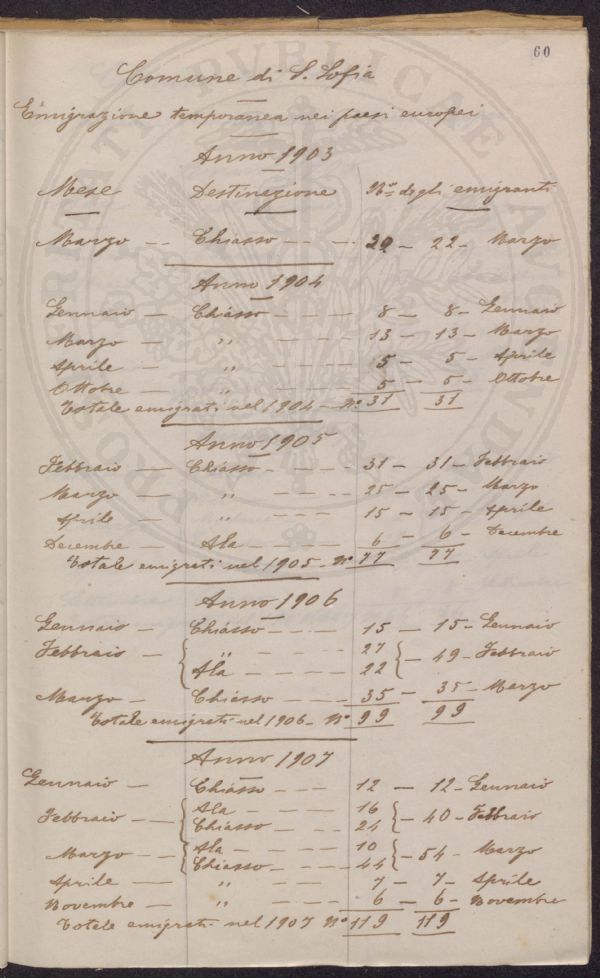 60
Comune di S. Sofia
Emigrazione temporanea nei paesi europei
Anno 1903
Mese Destinazione N.° degli emigranti
Marzo -- Chiasso - - - - 22 - 22 - Marzo
Anno 1904
Gennaio — Chiasso - - - 8 - 8 - Gennaio
Marzo — „ - - - - 13 - 13 - Marzo
Aprile — „ - - - - 5 - 5 - Aprile
Ottobre — „ - - - - 5 - 5 - Ottobre
Totale emigrati nel 1904 - N.° 31 31
Anno 1905
Febbraio — Chiasso - - - - 31 - 31 - Febbraio
Marzo — „ - - - - 25 - 25 - Marzo
Aprile — „ - - - - 15 - 15 - Aprile
Decembre — Ala - - - - 6 - 6 - Decembre
Totale emigrati nel 1905 - N.° 77 77
Anno 1906
Gennaio — Chiasso - - - 15 - 15 - Gennaio
Febbraio — { „ - - - - 27 } - 49 - Febbraio
Ala - - - - 22
Marzo — Chiasso - - - - 35 - 35 - Marzo
Totale emigrati nel 1906 - N.° 99 99
Anno 1907
Gennaio — Chiasso - - - 12 - 12 - Gennaio
Febbraio — { Ala - - - - 16 } - 40 - Febbraio
Chiasso - - - - 24
Marzo — { Ala - - - - 10 } - 54 - Marzo
Chiasso - - - - 44
Aprile — „ - - - - 7 - 7 - Aprile
Novembre — „ - - - - 6 - 6 - Novembre
Totale emigrati nel 1907 N.° 119 119